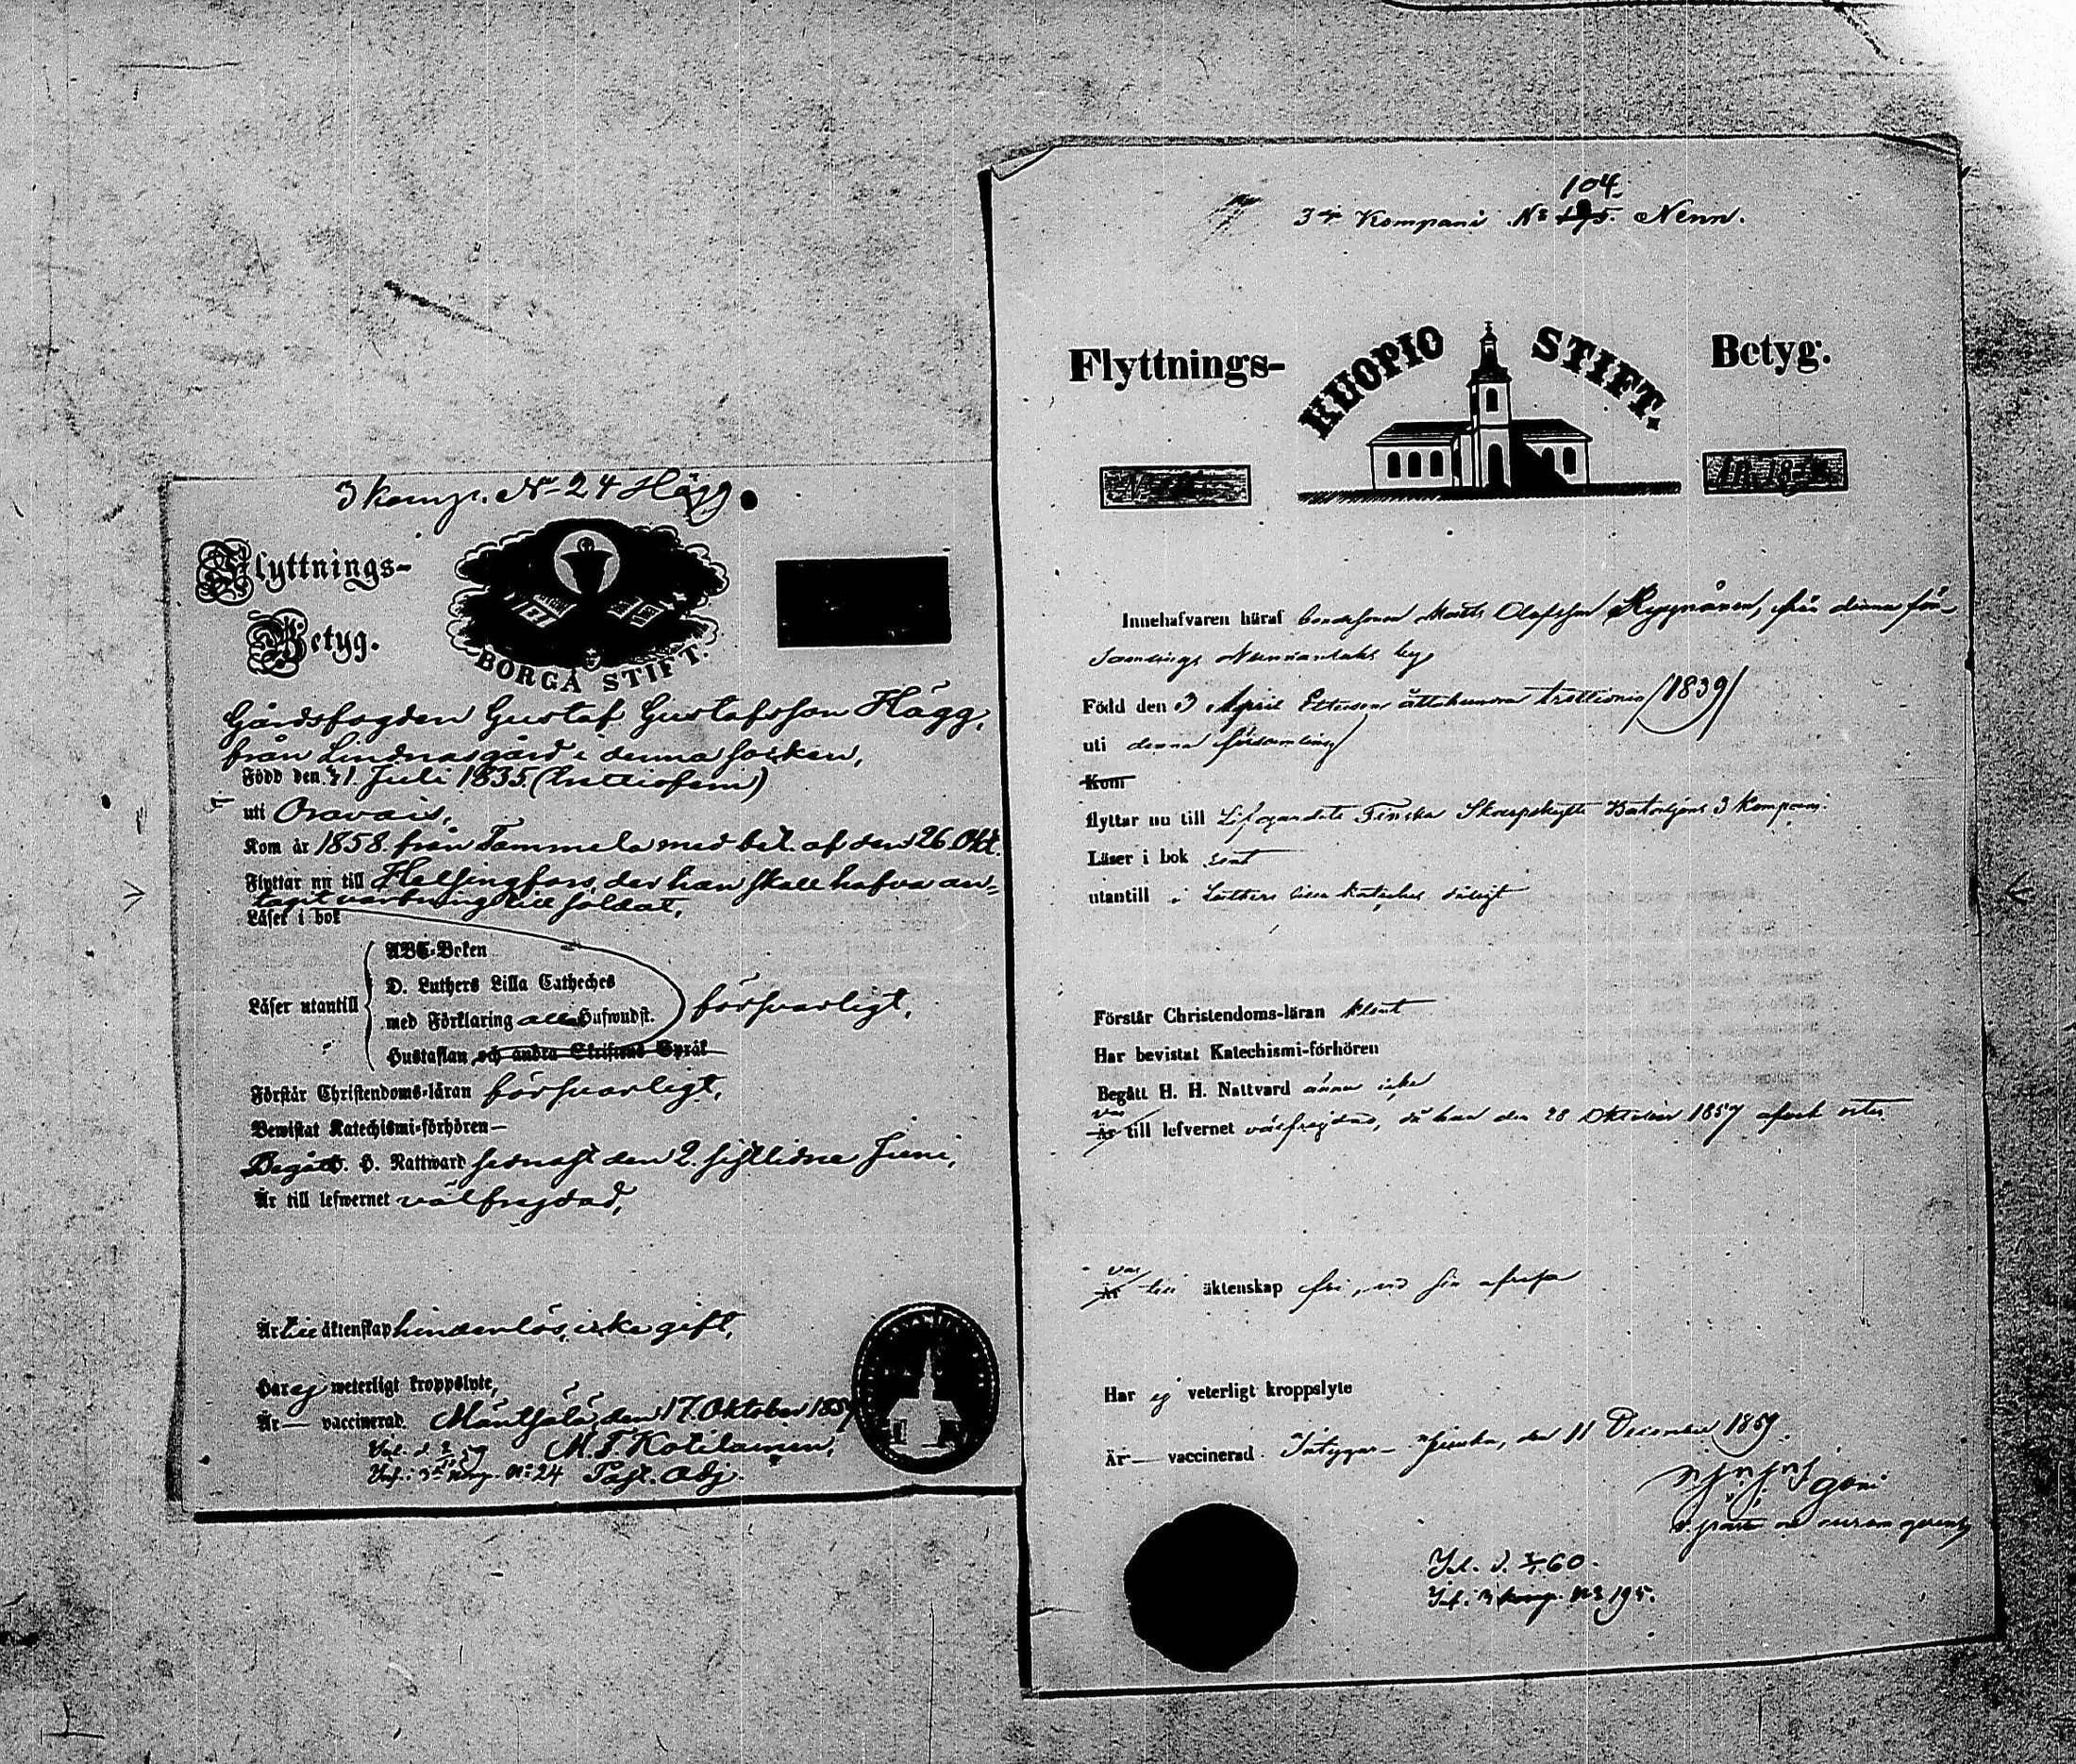 3 komp. No 24 Hägg.
Flyttnings-
Betyg.
BORGÅ STIFT.
Gårdsfogden Gustaf Gustafsson Hägg,
från Lindnäsgård i denna socken,
Född den 21 Juli 1835 (trettiofem)
uti Oravais,
Kom år 1858 från Tammela med bet. af den 26 Okt.
Flyttar nu till Helsingfors, der han skall hafva an-
tagit värfning till soldat,
Läser i bok
ABC-Boken
D. Luthers Lilla Catheches
Läser utantill
med Förklaring alla Hufwudst.
försvarligt,
Hustaflan och andra Skriftens Språk
Förstår Christendoms-läran försvarligt,
Bewistat Katechismi-förhören—
Begått H. H. Nattward senast den 2. sistlidne Juni,
Är till lefwernet välfrejdad,
Är till äktenskap hinderlös, icke gift,
Har ej weterligt kroppslyte,
Är — vaccinerad. Mäntsälä, den 17 Oktober 1859
M. F. Kotilainen,
Inf. 3 komp. No 24 Past. Adj.
104.
3dje Kompani No 195. Nenn.
Flyttnings- KUOPIO STIFT. Betyg.
Innehafvaren häraf bondesonen Matts Olofsson från denna för-
samlings by
Född den 3 April Ettusen åttahundra trettionio (1839)
uti denna församling
Kom
flyttar nu till Lifgardets Finska Skarpskytte Bataljons 3 Kompani.
Läser i bok rent
utantill i Luthers lilla kateches
Förstår Christendoms-läran klent
Har bevistat Katechismi-förhören
Begått H. H. Nattvard ännu icke
var
Är till lefvernet välfrejdad, då han den 28 Oktober 1857 afreste
var
Är till äktenskap fri, vid sin afresa
Har ej veterligt kroppslyte
Är — vaccinerad. Intygar den 11 December 1859.
Inl. d. 60.
Inf. 3 komp. No 195.